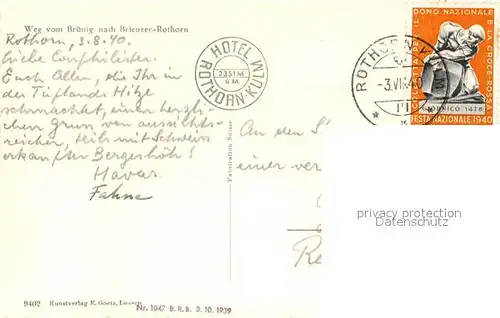 Weg vom Brünig nach Brienzer-Rothorn
Rothorn, 3.8.40.
Liebe Confphilister.
Euch Allen, die Ihr in
der Tieflands Hitze
schmachtet, einen herzli-
chen Gruss von aussichts-
reicher, teils mit Schweiss
erkaufter Bergeshöh!
Havas.
Fahne
HOTEL
2351 M.
ü M.
ROTHORN-KULM
ROTHORN KULM
-3.VIII.40
DONO NAZIONALE
E LA CROCE ROSSA
GIORNICO 1478
FESTA NAZIONALE 1940
An den
einer ver
privacy protection
Datenschutz
9402 Kunstverlag E. Goetz, Luzern
Nr. 1047 B.R.B. 3. 10. 1939